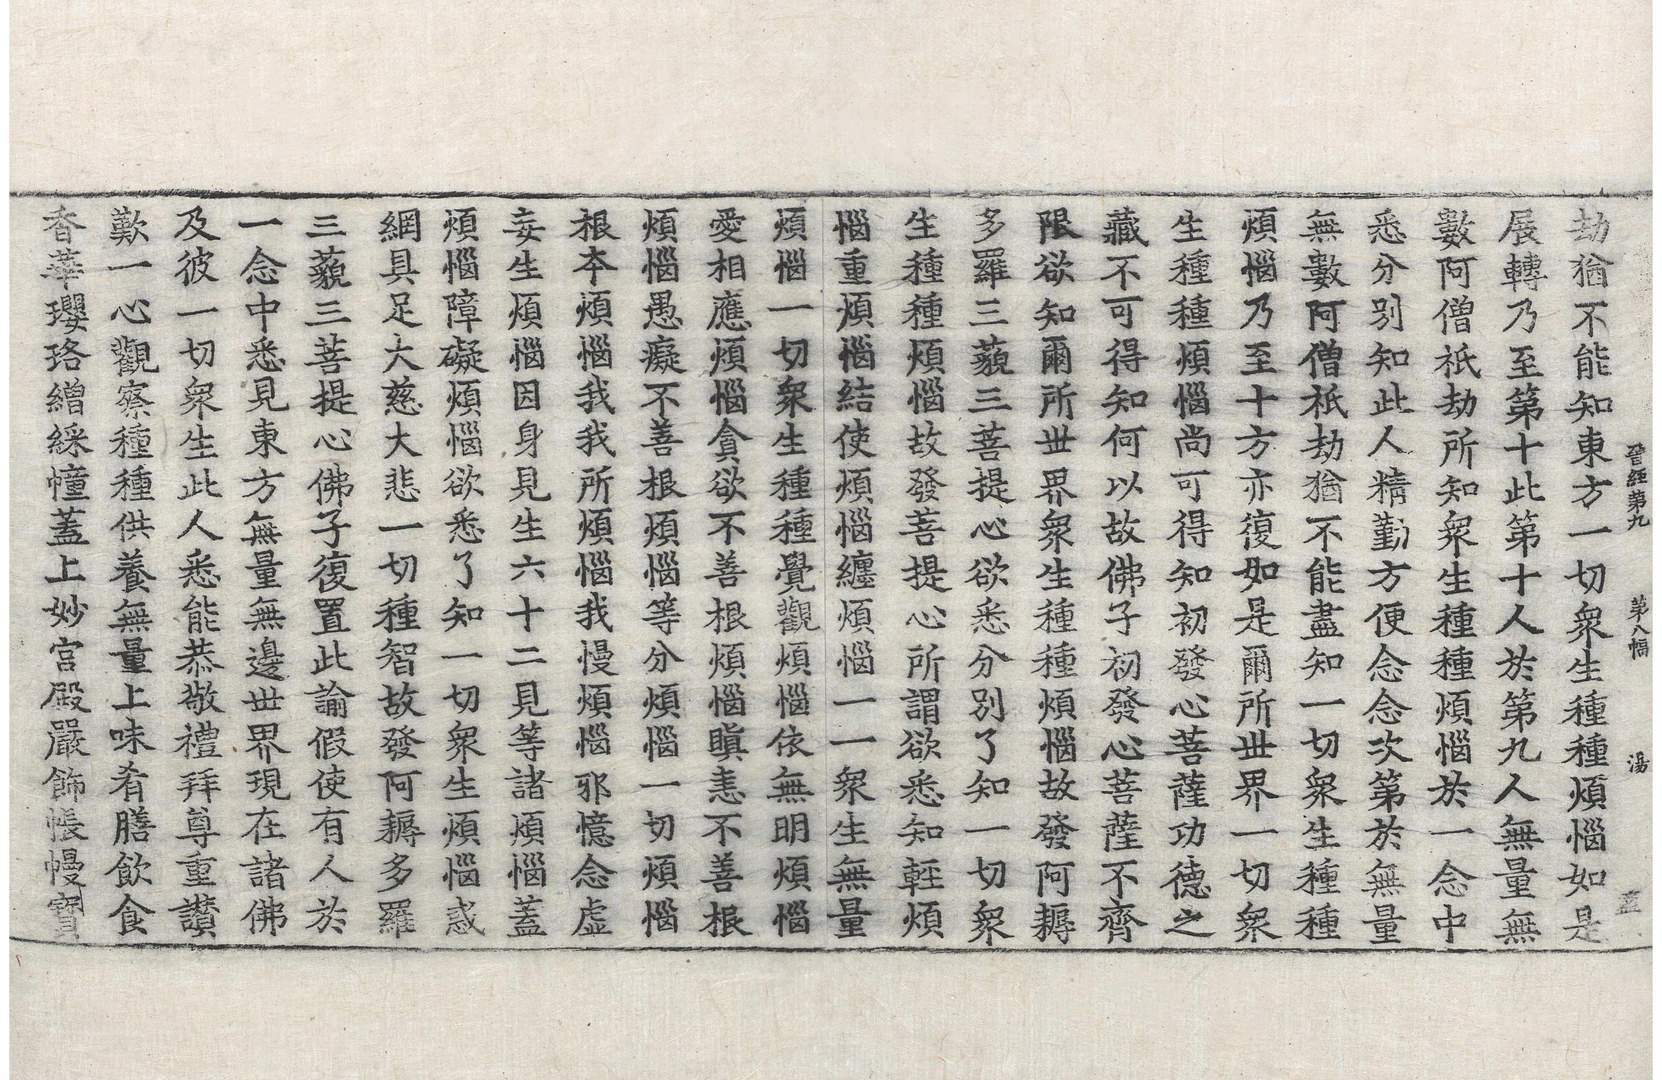 晉經第九 第八幅 湯
劫猶不能知東方一切衆生種種煩惱如是
展轉乃至第十此第十人於第九人無量無
數阿僧祇劫所知衆生種種煩惱於一念中
悉分別知此人精勤方便念念次第於無量
無數阿僧祇劫猶不能盡知一切衆生種種
煩惱乃至十方亦復如是爾所世界一切衆
生種種煩惱尚可得知初發心菩薩功德之
藏不可得知何以故佛子初發心菩薩不齊
限欲知爾所世界衆生種種煩惱故發阿耨
多羅三藐三菩提心欲悉分別了知一切衆
生種種煩惱故發菩提心所謂欲悉知輕煩
惱重煩惱結使煩惱纏煩惱一一衆生無量
煩惱一切衆生種種覺觀煩惱依無明煩惱
愛相應煩惱貪欲不善根煩惱瞋恚不善根
煩惱愚癡不善根煩惱等分煩惱一切煩惱
根本煩惱我我所煩惱我慢煩惱邪憶念虛
妄生煩惱因身見生六十二見等諸煩惱蓋
煩惱障礙煩惱欲悉了知一切衆生煩惱惑
網具足大慈大悲一切種智故發阿耨多羅
三藐三菩提心佛子復置此諭假使有人於
一念中悉見東方無量無邊世界現在諸佛
及彼一切衆生此人悉能恭敬禮拜尊重讚
歎一心觀察種種供養無量上味肴膳飲食
香華瓔珞繒綵幢蓋上妙宮殿嚴飾帳幔寶